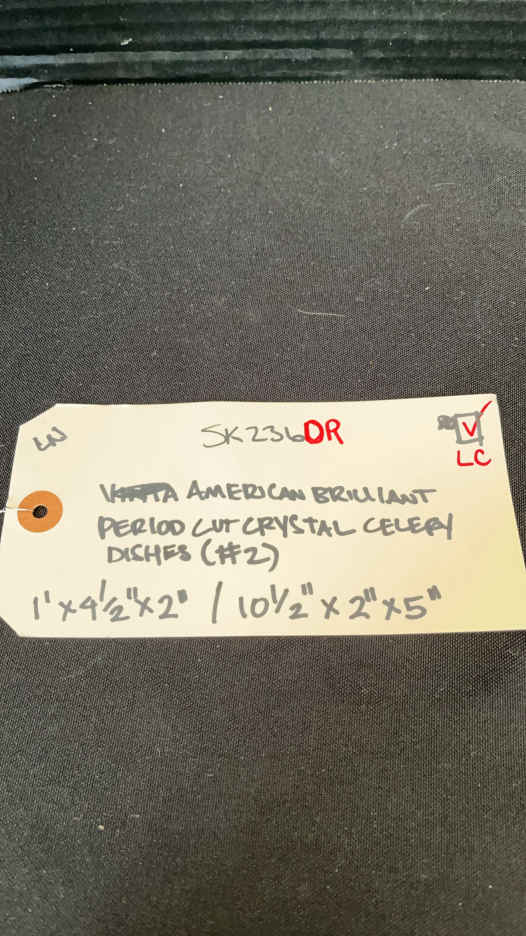 LN
SK236DR
V
LC
AMERICAN BRILLIANT
PERIOD CUT CRYSTAL CELERY
DISHES (#2)
1' x 4 1/2" x 2" / 10 1/2" x 2" x 5"